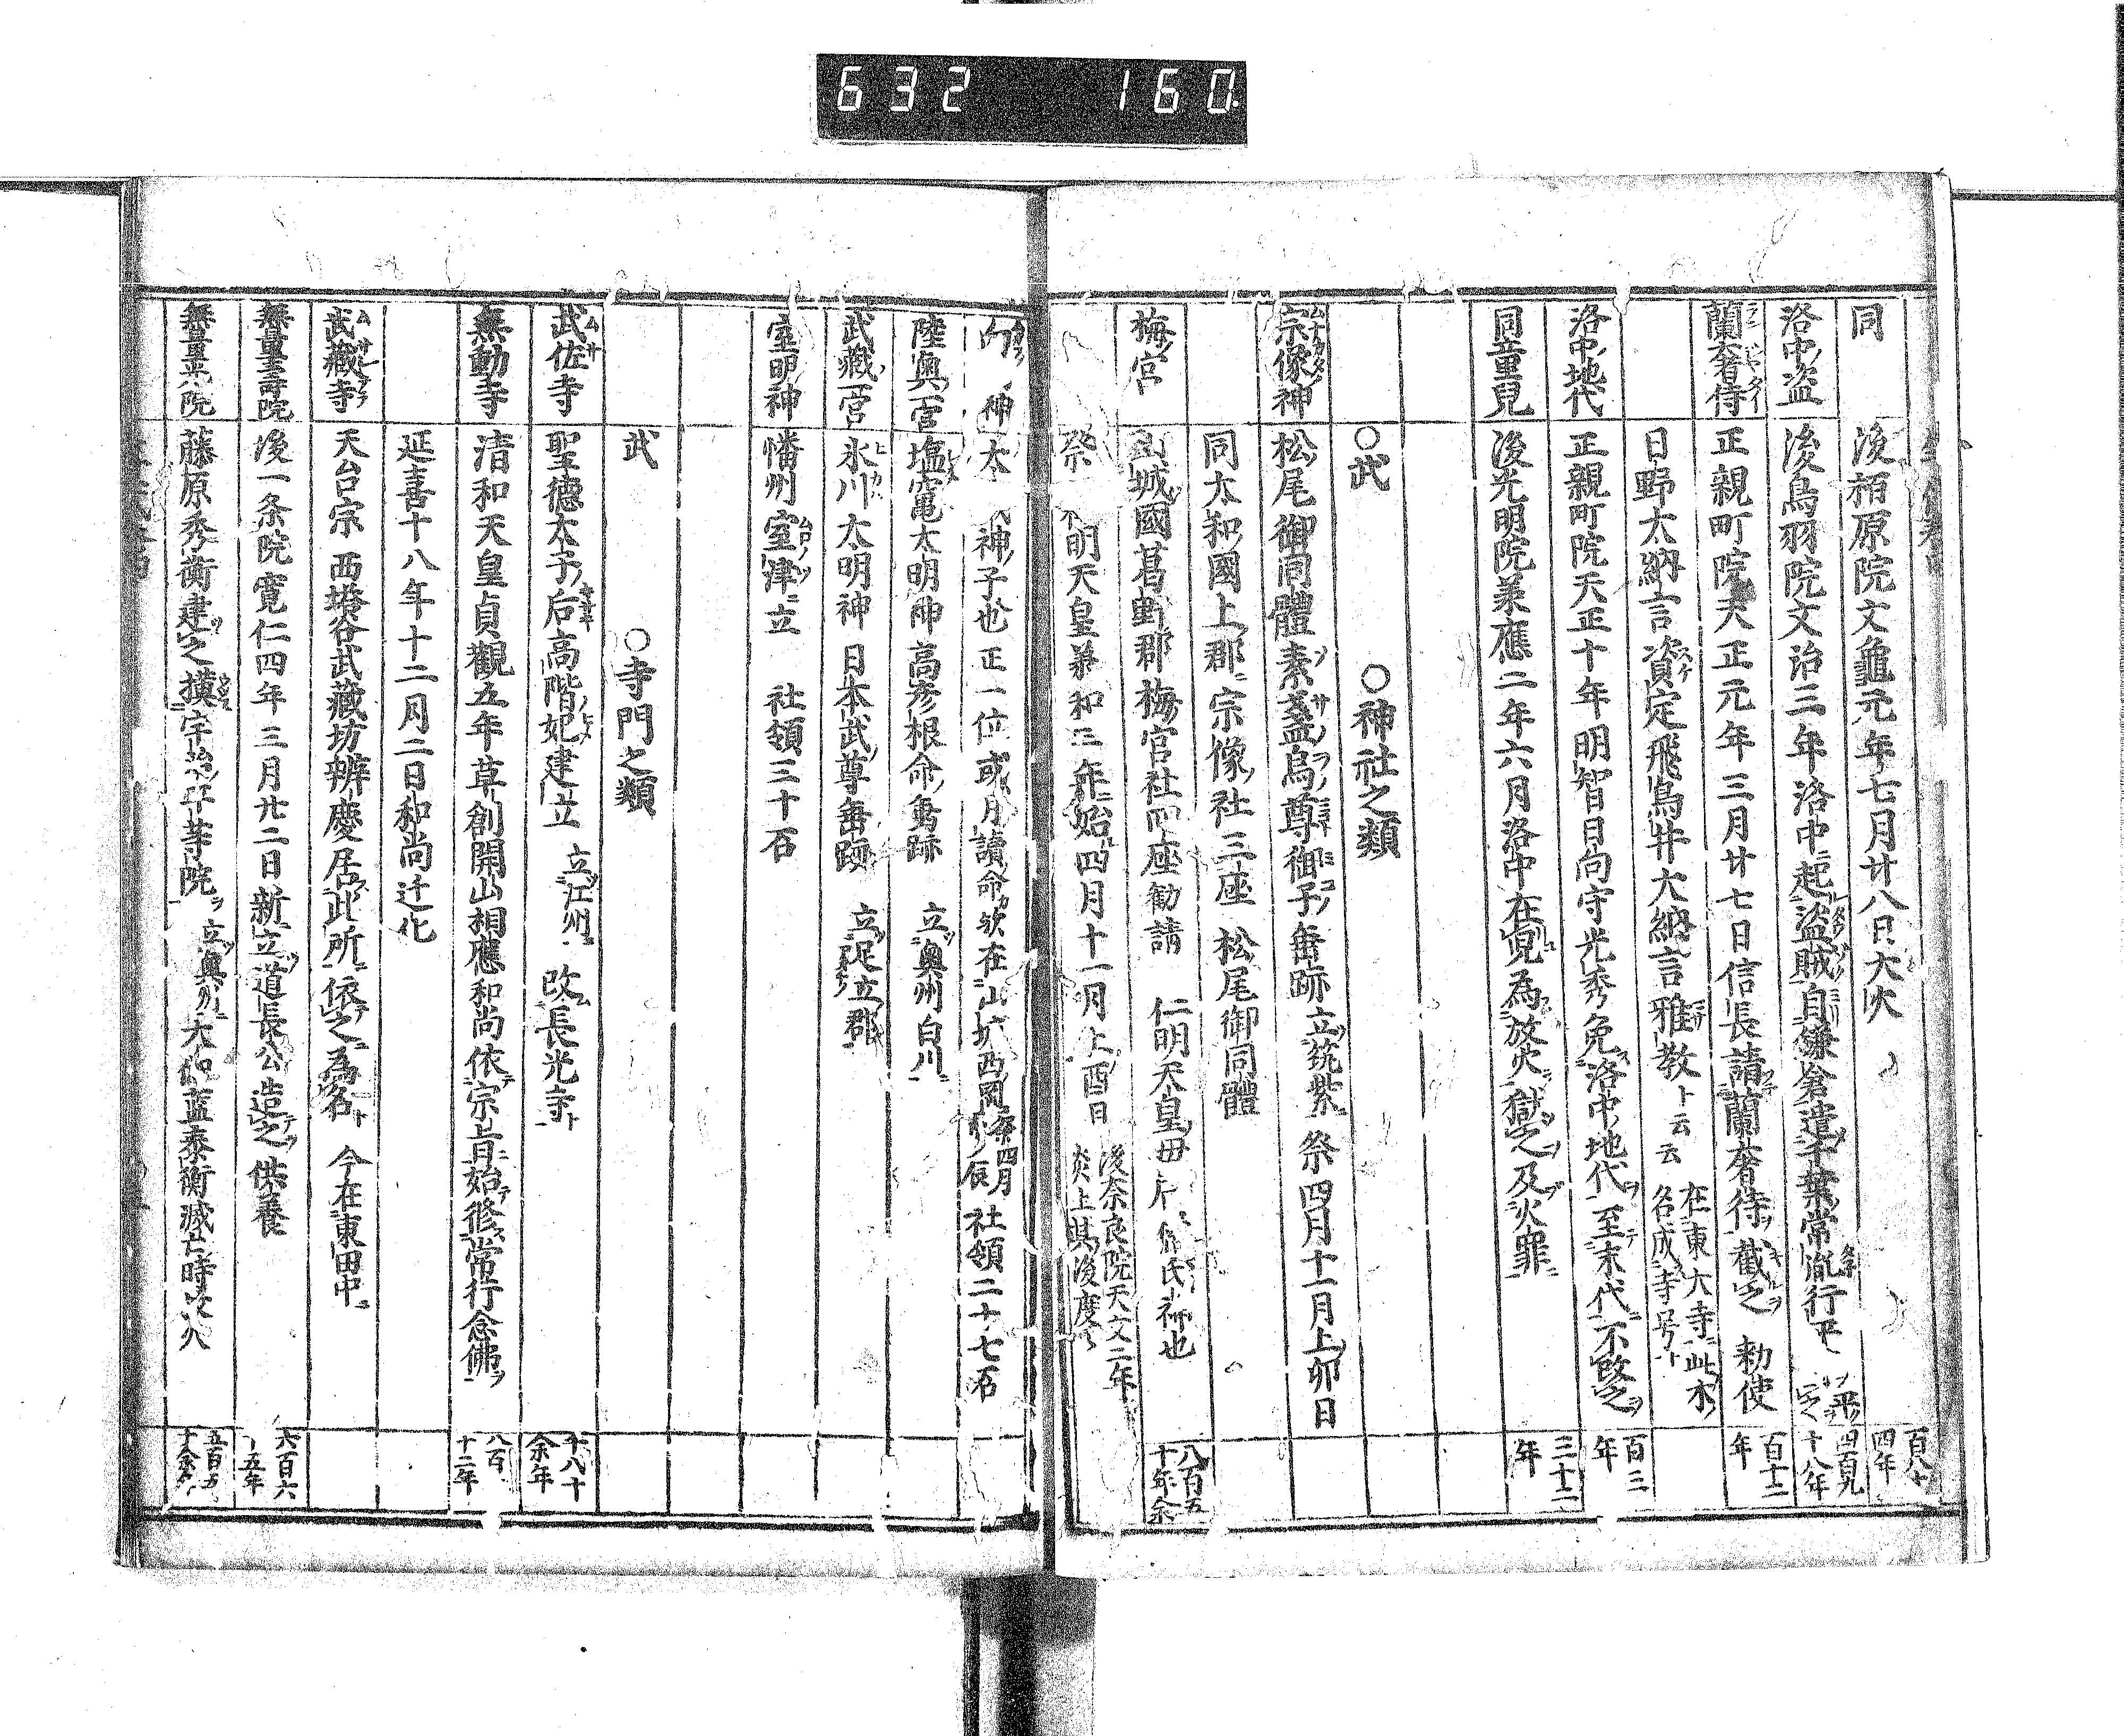 632 160
同 後栢原院文龜元年七月廿八日大火 百八十四年
洛中盜 後鳥羽院文治三年洛中起盜賊自鎌倉遣千葉常胤行平 四百九十八年
蘭奢侍 正親町院天正元年三月廿七日信長請蘭奢待截之 勅使 百十二年
日野大納言資定飛鳥井大納言雅教ト云云 在東大寺此木名成寺号ト
洛中地代 正親町院天正十年明智日向守光秀免洛中地代至末代不改之 百三年
同童兒 後光明院義應二年六月洛中在児為放火獄之及火罪 三十二年
○武 ○神社之類
宗像神 松尾御同體素盞烏尊御子垂跡立筑紫 祭四月十一月上卯日
同大和國上郡宗像社三座 松尾御同體
梅宮 山城國葛野郡梅宮社四座勧請 仁明天皇母 氏神也 八百五十年余
祭 明天皇 和三年始四月十一月上酉日 後奈良院天文二年炎上其後度々
向 神 太 神子也正一位或月讀命欤在山城西岡祭四月 辰 社領二十七石
陸奧一宮 塩竃太明神 高彦根命垂跡 立奥州白川
武藏一宮 氷川太明神 日本武尊垂跡 立足立郡
室明神 幡州室津立 社領三十石
武 ○寺門之類
武佐寺 聖德太子后高階妃建立 立江州 改長光寺 十八十余年
無動寺 清和天皇貞觀五年草創開山相應和尚依宗旨始修常行念佛 八百十二年
延喜十八年十二月二日和尚迁化
武藏寺 天台宗 西塔谷武藏坊辨慶居此所依之為名 今在東田中
無量壽院 後一条院寛仁四年三月廿二日新立道長公造之供養 六百六十五年
無量光院 藤原秀衡建之摸宇治平等院 立奥州 大伽藍泰衡滅亡時